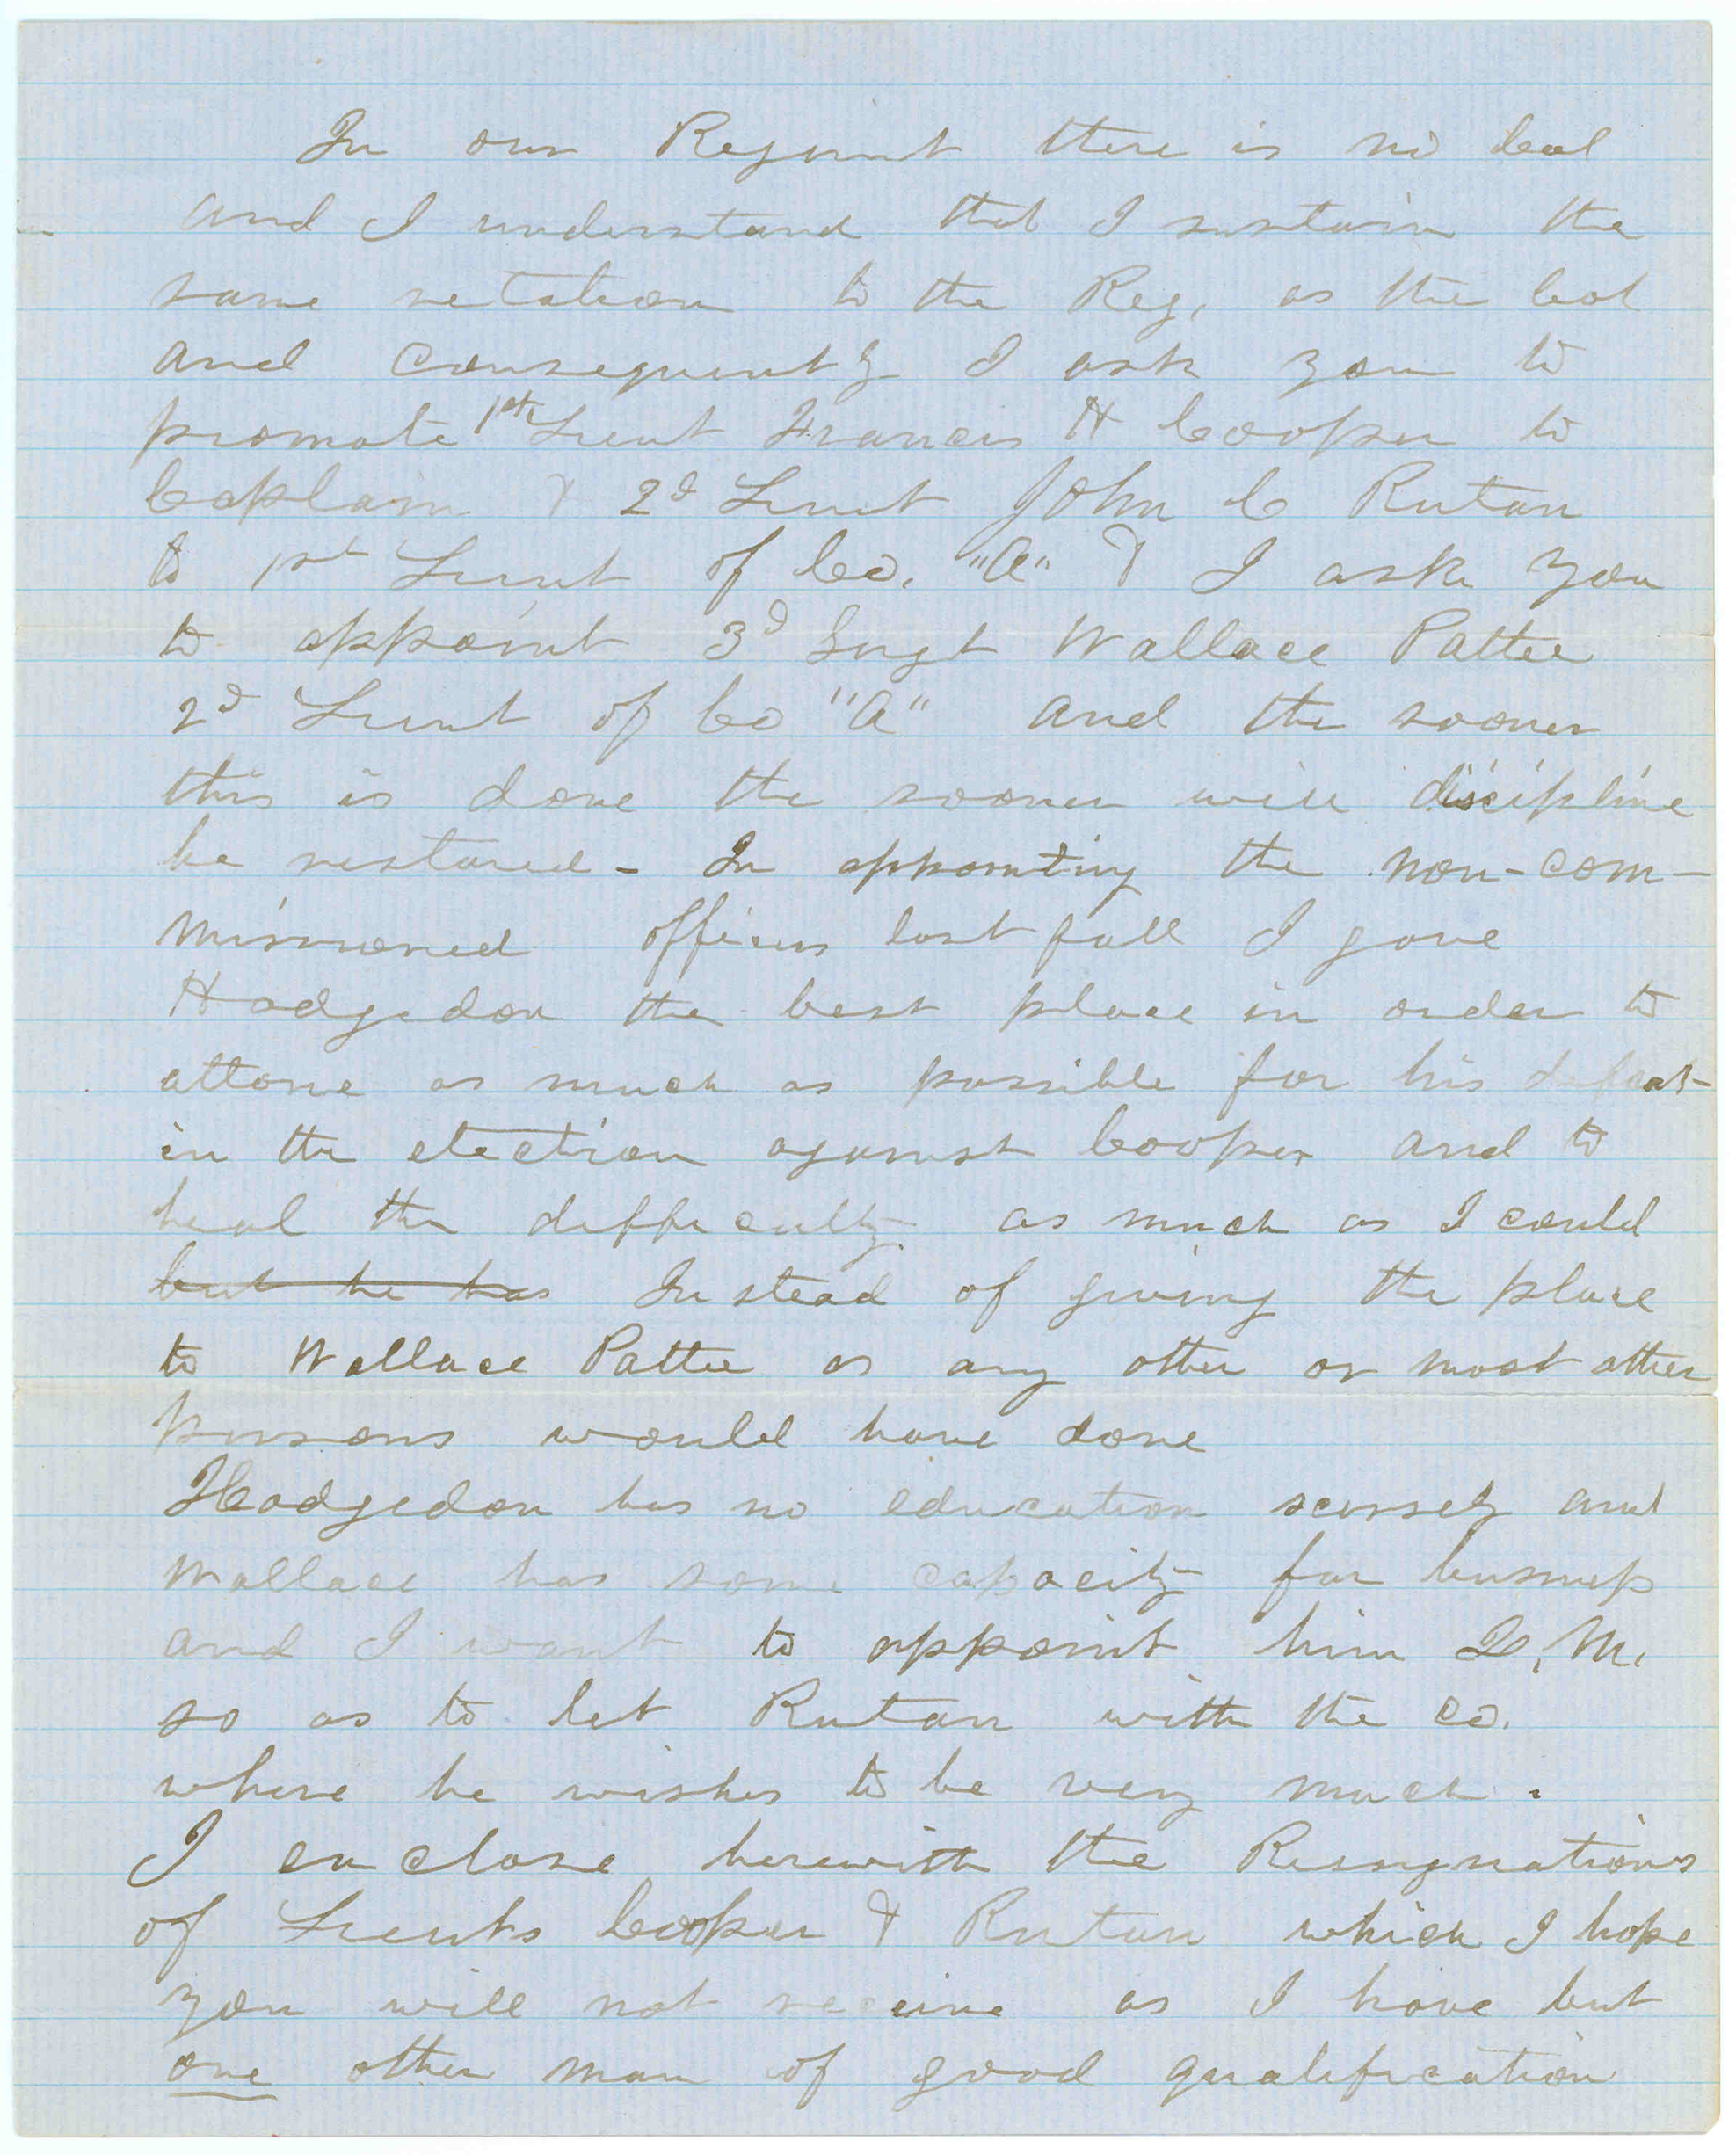 In our Regiment there is no Col
and I understand that I sustain the
same relation to the Reg, as the Col
and consequently I ask you to
promote 1st Lieut Francis H Cooper to
Captain & 2d Lieut John C Rutan
to 1st Lieut of Co. "A" & I ask you
to appoint 3d Sergt Wallace Pattee
2d Lieut of Co "A" and the sooner
this is done the sooner will discipline
be restored - In appointing the non-com-
missioned officers last fall I gave
Hodgedon the best place in order to
attone as much as possible for his defeat
in the election against Cooper and to
heal the difficulty as much as I could
but he has Instead of giving the place
to Wallace Pattee as any other or most other
persons would have done
Hodgedon has no education scersely and
Wallace has some capacity for business
and I want to appoint him Q. M.
so as to let Rutan with the co.
where he wishes to be very much.
I enclose herewith the Resignations
of Lieuts Cooper & Rutan which I hope
you will not receive as I have but
one other man of good qualification